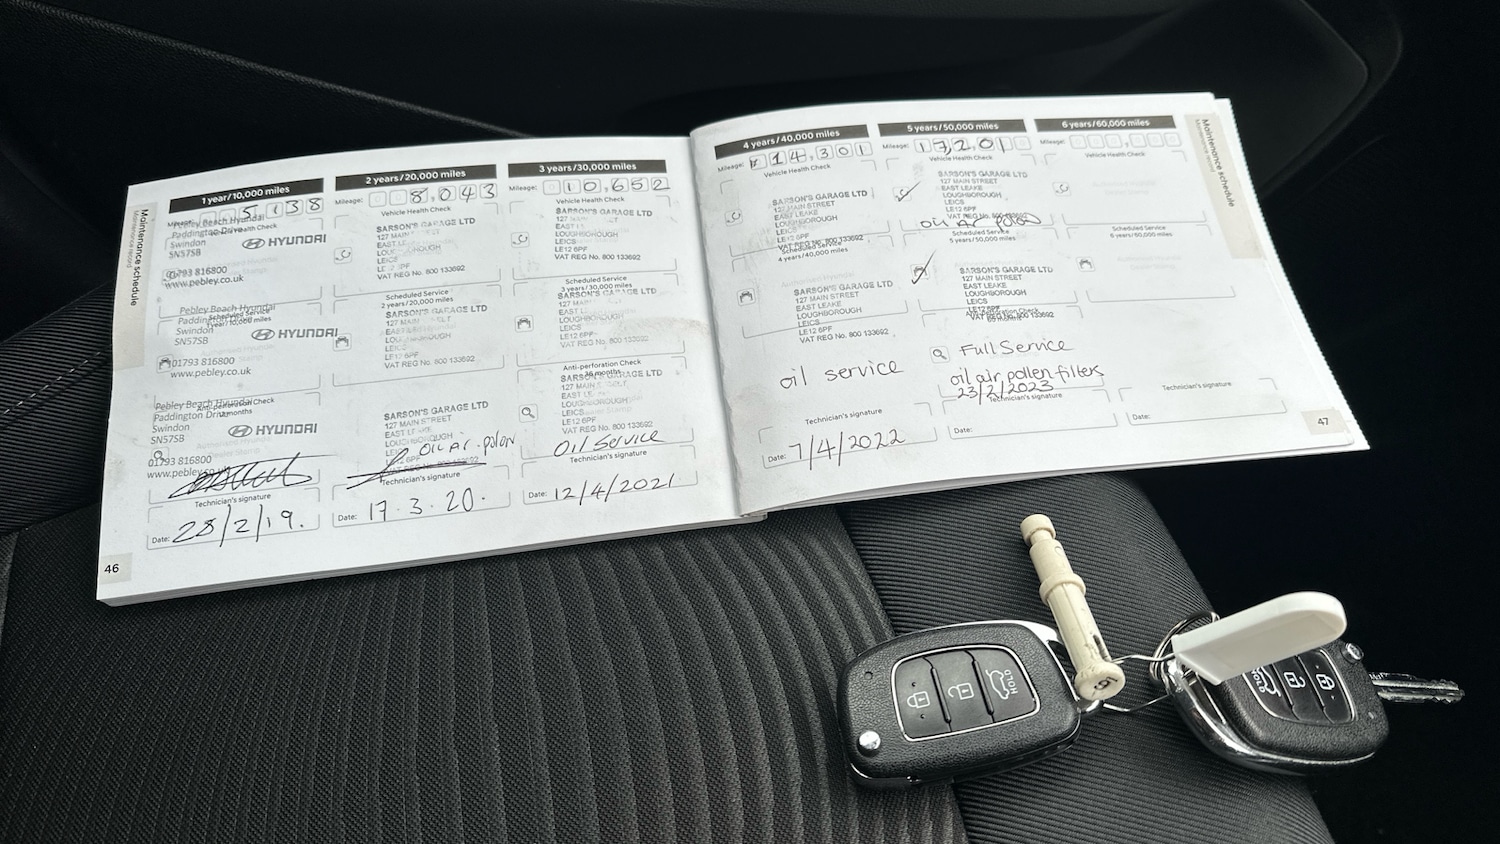 Maintenance schedule
Maintenance record
1 year/10,000 miles
Mileage: 5,138
Pebley Beach Hyundai
Paddington Drive
Swindon
SN57SB
HYUNDAI
01793 816800
www.pebley.co.uk
Pebley Beach Hyundai
Paddington Drive
Swindon
SN57SB
HYUNDAI
01793 816800
www.pebley.co.uk
Anti-perforation Check
Pebley Beach Hyundai
Paddington Drive
Swindon
SN57SB
HYUNDAI
01793 816800
www.pebley.co.uk
Technician's signature
Date: 28/2/19.
46
2 years/20,000 miles
Mileage: 8,043
Vehicle Health Check
SARSON'S GARAGE LTD
127 MAIN STREET
EAST
LOUGHBOROUGH
LEICS
LE12 6PF
VAT REG No. 800 133692
Scheduled Service
2 years/20,000 miles
SARSON'S GARAGE LTD
127 MAIN STREET
LOUGHBOROUGH
LEICS
LE12 6PF
VAT REG No. 800 133692
SARSON'S GARAGE LTD
127 MAIN STREET
EAST
LOUGHBOROUGH
LEICS
LE12 6PF
VAT REG No. 800 133692
Technician's signature
Date: 17.3.20.
3 years/30,000 miles
Mileage: 10,652
Vehicle Health Check
SARSON'S GARAGE LTD
127 MAIN
EAST
LOUGHBOROUGH
LEICS
LE12 6PF
VAT REG No. 800 133692
Scheduled Service
3 years/30,000 miles
SARSON'S GARAGE LTD
127 MAIN
EAST
LOUGHBOROUGH
LEICS
LE12 6PF
VAT REG No. 800 133692
Anti-perforation Check
36 months
SARSON'S GARAGE LTD
127 MAIN
EAST
LOUGHBOROUGH
LEICS
LE12 6PF
VAT REG No. 800 133692
Oil Service
Technician's signature
Date: 12/4/2021
4 years/40,000 miles
Mileage: 14,301
Vehicle Health Check
SARSON'S GARAGE LTD
127 MAIN STREET
EAST LEAKE
LOUGHBOROUGH
LEICS
LE12 6PF
VAT REG No. 800 133692
Scheduled Service
4 years/40,000 miles
SARSON'S GARAGE LTD
127 MAIN STREET
EAST LEAKE
LOUGHBOROUGH
LEICS
LE12 6PF
VAT REG No. 800 133692
oil service
Technician's signature
Date: 7/4/2022
5 years/50,000 miles
Mileage: 17,201
Vehicle Health Check
SARSON'S GARAGE LTD
127 MAIN STREET
EAST LEAKE
LOUGHBOROUGH
LEICS
LE12 6PF
VAT REG No. 800 133692
Scheduled Service
5 years/50,000 miles
SARSON'S GARAGE LTD
127 MAIN STREET
EAST LEAKE
LOUGHBOROUGH
LEICS
LE12 6PF
VAT REG No. 800 133692
Full Service
oil air pollen filters
23/2/2023
Technician's signature
Date:
6 years/60,000 miles
Mileage:
Vehicle Health Check
Scheduled Service
6 years/60,000 miles
Technician's signature
Date:
Maintenance schedule
Maintenance record
47
HOLD
HOLD